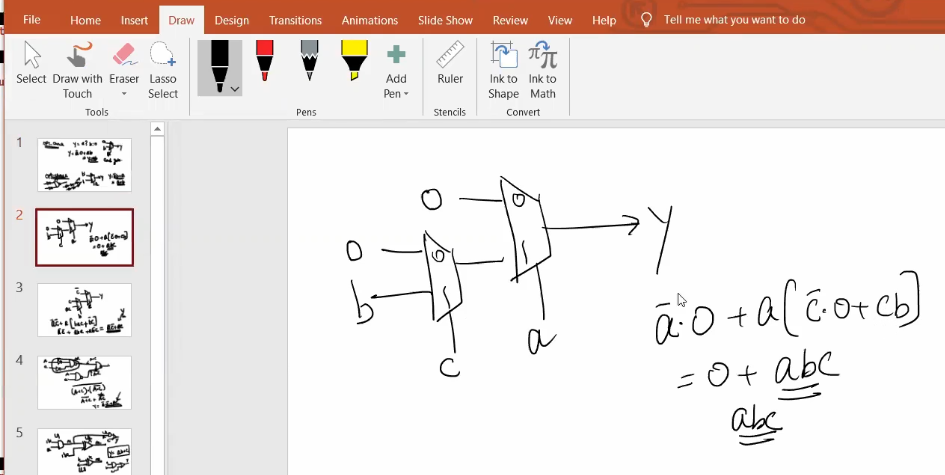 File Home Insert Draw Design Transitions Animations Slide Show Review View Help Tell me what you want to do
Select Draw with Touch Eraser Lasso Select Add Pen Ruler Ink to Shape Ink to Math
Tools Pens Stencils Convert
1
2
3
4
5
0 0
0 0 1 Y
b 1
c a
ā·0 + a[c̄·0+cb]
= 0 + abc
abc